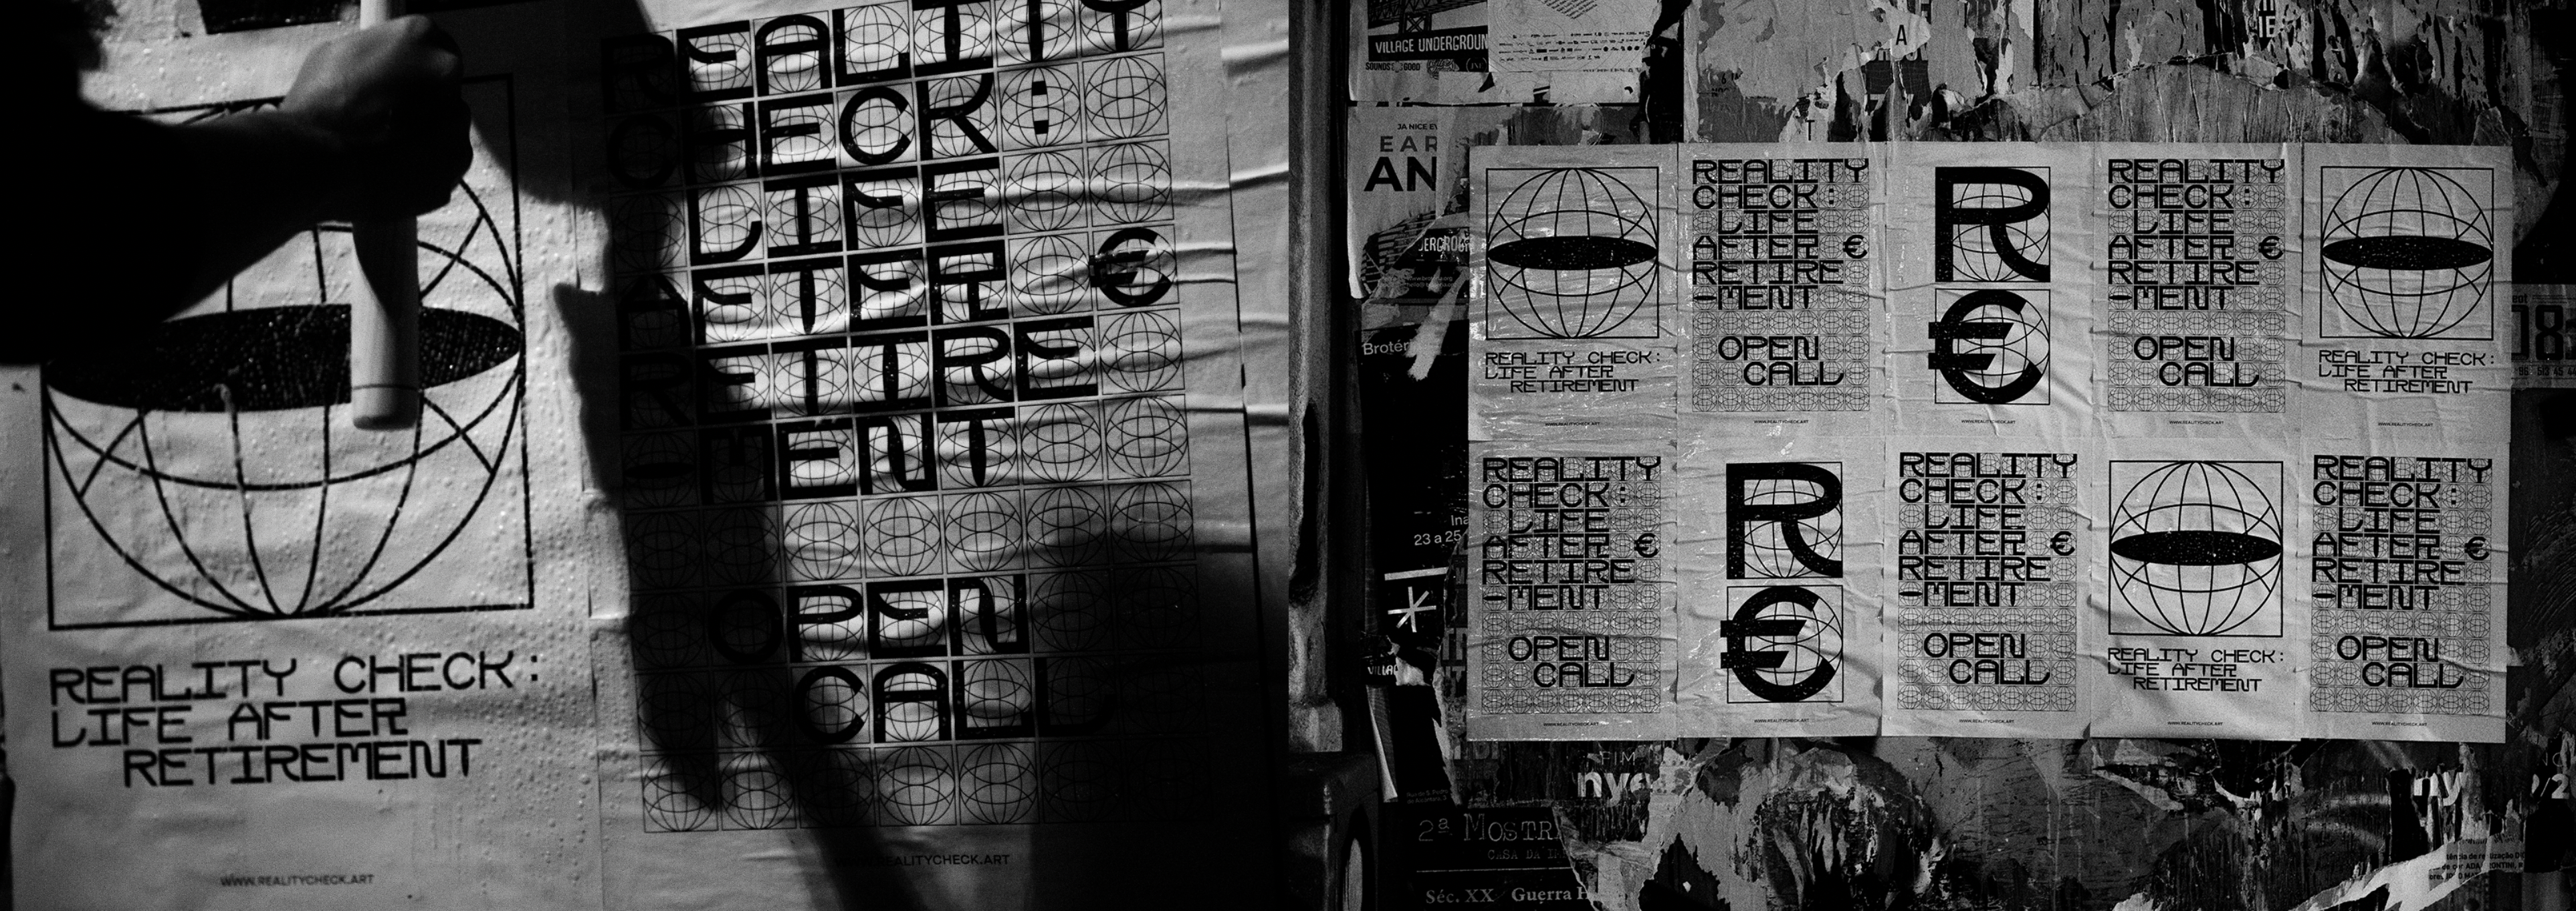 REALITY CHECK:
LIFE AFTER
RETIREMENT
WWW.REALITYCHECK.ART
REALITY
CHECK:
LIFE
AFTER €
RETIRE
-MENT
OPEN
CALL
WWW.REALITYCHECK.ART
VILLAGE UNDERGROUN
A
JA NICE EV
EAR
AN
REALITY CHECK:
LIFE AFTER
RETIREMENT
WWW.REALITYCHECK.ART
REALITY
CHECK:
LIFE
AFTER €
RETIRE
-MENT
OPEN
CALL
WWW.REALITYCHECK.ART
R
€
WWW.REALITYCHECK.ART
REALITY
CHECK:
LIFE
AFTER €
RETIRE
-MENT
OPEN
CALL
WWW.REALITYCHECK.ART
REALITY CHECK:
LIFE AFTER
RETIREMENT
WWW.REALITYCHECK.ART
REALITY
CHECK:
LIFE
AFTER €
RETIRE
-MENT
OPEN
CALL
WWW.REALITYCHECK.ART
R
€
WWW.REALITYCHECK.ART
REALITY
CHECK:
LIFE
AFTER €
RETIRE
-MENT
OPEN
CALL
WWW.REALITYCHECK.ART
REALITY CHECK:
LIFE AFTER
RETIREMENT
WWW.REALITYCHECK.ART
REALITY
CHECK:
LIFE
AFTER €
RETIRE
-MENT
OPEN
CALL
WWW.REALITYCHECK.ART
Brotér
Ina
23 a 25
nye
ny
2ª MOSTR
CASA DA
Séc. XX Guerra